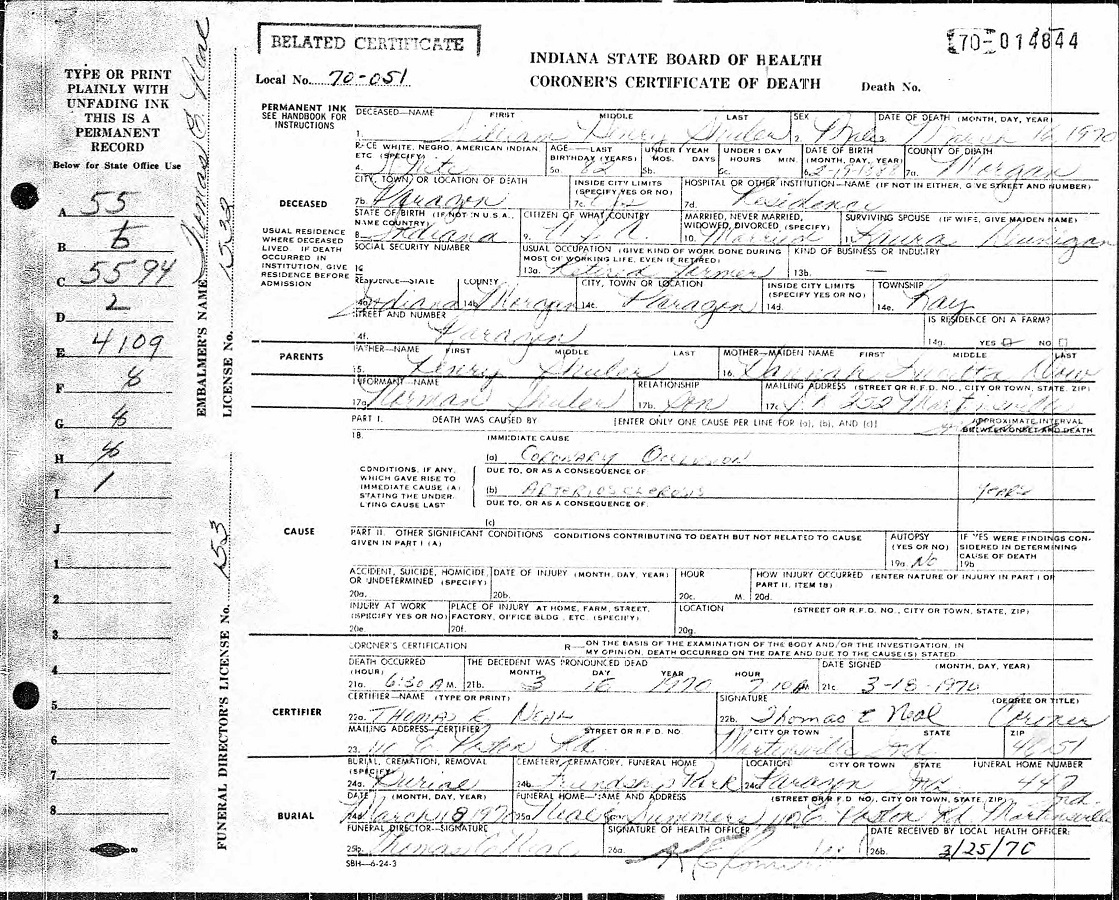 BELATED CERTIFICATE
70-014844
INDIANA STATE BOARD OF HEALTH
Local No. 70-051 CORONER'S CERTIFICATE OF DEATH Death No.
TYPE OR PRINT
PLAINLY WITH
UNFADING INK
THIS IS A
PERMANENT
RECORD
Below for State Office Use
A 55
B
C 5594
2
D
E 4109
F 8
G 8
H 8
I 1
J
1
2
3
4
5
6
7
8
EMBALMER'S NAME Thomas E. Neal
LICENSE No.
FUNERAL DIRECTOR'S LICENSE No. 153
PERMANENT INK
SEE HANDBOOK FOR
INSTRUCTIONS
DECEASED—NAME FIRST MIDDLE LAST SEX DATE OF DEATH (MONTH, DAY, YEAR)
1. William Henry Shuler 2. Male March 16 1970
RACE WHITE, NEGRO, AMERICAN INDIAN ETC (SPECIFY) AGE—LAST BIRTHDAY (YEARS) UNDER 1 YEAR MOS. DAYS UNDER 1 DAY HOURS MIN. DATE OF BIRTH (MONTH, DAY, YEAR) COUNTY OF DEATH
4. White 5a. 82 5b. 5c. 6. 2-19-1888 7a. Morgan
DECEASED
CITY, TOWN, OR LOCATION OF DEATH INSIDE CITY LIMITS (SPECIFY YES OR NO) HOSPITAL OR OTHER INSTITUTION—NAME (IF NOT IN EITHER, GIVE STREET AND NUMBER)
7b. Paragon 7c. Yes 7d. Residence
USUAL RESIDENCE
WHERE DECEASED
LIVED IF DEATH
OCCURRED IN
INSTITUTION, GIVE
RESIDENCE BEFORE
ADMISSION
STATE OF BIRTH (IF NOT IN U.S.A., NAME COUNTRY) CITIZEN OF WHAT COUNTRY MARRIED, NEVER MARRIED, WIDOWED, DIVORCED, (SPECIFY) SURVIVING SPOUSE (IF WIFE, GIVE MAIDEN NAME)
8. Indiana 9. U.S.A. 10. Married 11. Laura
SOCIAL SECURITY NUMBER USUAL OCCUPATION (GIVE KIND OF WORK DONE DURING MOST OF WORKING LIFE, EVEN IF RETIRED) KIND OF BUSINESS OR INDUSTRY
13a. Retired Farmer 13b. —
RESIDENCE—STATE COUNTY CITY, TOWN OR LOCATION INSIDE CITY LIMITS (SPECIFY YES OR NO) TOWNSHIP
14a. Indiana 14b. Morgan 14c. Paragon 14d. 14e. Ray
STREET AND NUMBER IS RESIDENCE ON A FARM?
14f. Paragon 14g. YES NO
PARENTS
FATHER—NAME FIRST MIDDLE LAST MOTHER—MAIDEN NAME FIRST MIDDLE LAST
15. Henry Shuler 16. Hannah
INFORMANT—NAME RELATIONSHIP MAILING ADDRESS (STREET OR R.F.D. NO., CITY OR TOWN, STATE, ZIP)
17a. Norman Shuler 17b. Son 17c. 252 Martinsville
PART I. DEATH WAS CAUSED BY [ENTER ONLY ONE CAUSE PER LINE FOR (a), (b), AND (c)] APPROXIMATE INTERVAL BETWEEN ONSET AND DEATH
18. IMMEDIATE CAUSE
(a) CORONARY OCCLUSION
CONDITIONS, IF ANY,
WHICH GAVE RISE TO
IMMEDIATE CAUSE (A)
STATING THE UNDER-
LYING CAUSE LAST
DUE TO, OR AS A CONSEQUENCE OF:
(b) ARTERIOSCLEROSIS YEARS
DUE TO, OR AS A CONSEQUENCE OF:
(c)
CAUSE
PART II. OTHER SIGNIFICANT CONDITIONS CONDITIONS CONTRIBUTING TO DEATH BUT NOT RELATED TO CAUSE GIVEN IN PART I (A) AUTOPSY (YES OR NO) IF YES WERE FINDINGS CONSIDERED IN DETERMINING CAUSE OF DEATH
19a. No 19b
ACCIDENT, SUICIDE, HOMICIDE, OR UNDETERMINED (SPECIFY) DATE OF INJURY (MONTH, DAY, YEAR) HOUR HOW INJURY OCCURRED (ENTER NATURE OF INJURY IN PART I OR PART II, ITEM 18)
20a. 20b. 20c. M. 20d.
INJURY AT WORK (SPECIFY YES OR NO) PLACE OF INJURY AT HOME, FARM, STREET, FACTORY, OFFICE BLDG., ETC. (SPECIFY) LOCATION (STREET OR R.F.D. NO., CITY OR TOWN, STATE, ZIP)
20e. 20f. 20g.
CORONER'S CERTIFICATION R— ON THE BASIS OF THE EXAMINATION OF THE BODY AND/OR THE INVESTIGATION, IN MY OPINION, DEATH OCCURRED ON THE DATE AND DUE TO THE CAUSE(S) STATED
DEATH OCCURRED (HOUR) THE DECEDENT WAS PRONOUNCED DEAD MONTH DAY YEAR HOUR DATE SIGNED (MONTH, DAY, YEAR)
21a. 6:30 A M. 21b. 3 16 1970 7 10 AM 21c 3-18-1970
CERTIFIER
CERTIFIER—NAME (TYPE OR PRINT) SIGNATURE (DEGREE OR TITLE)
22a. THOMAS E. NEAL 22b. Thomas E Neal Coroner
MAILING ADDRESS—CERTIFIER STREET OR R.F.D. NO. CITY OR TOWN STATE ZIP
23. 110 E. Poston Rd. Martinsville Ind 46151
BURIAL
BURIAL, CREMATION, REMOVAL (SPECIFY) CEMETERY, CREMATORY, FUNERAL HOME LOCATION CITY OR TOWN STATE FUNERAL HOME NUMBER
24a. Burial 24b. Friendship Park 24c. Paragon Ind 447
DATE (MONTH, DAY, YEAR) FUNERAL HOME—NAME AND ADDRESS (STREET OR R.F.D. NO., CITY OR TOWN, STATE, ZIP)
24d. March 18 1970 25a. Neal Summers 110 E Poston Rd Martinsville Ind.
FUNERAL DIRECTOR—SIGNATURE SIGNATURE OF HEALTH OFFICER DATE RECEIVED BY LOCAL HEALTH OFFICER:
25b. Thomas E Neal 26a. 26b. 3/25/70
SBH—6-24-3